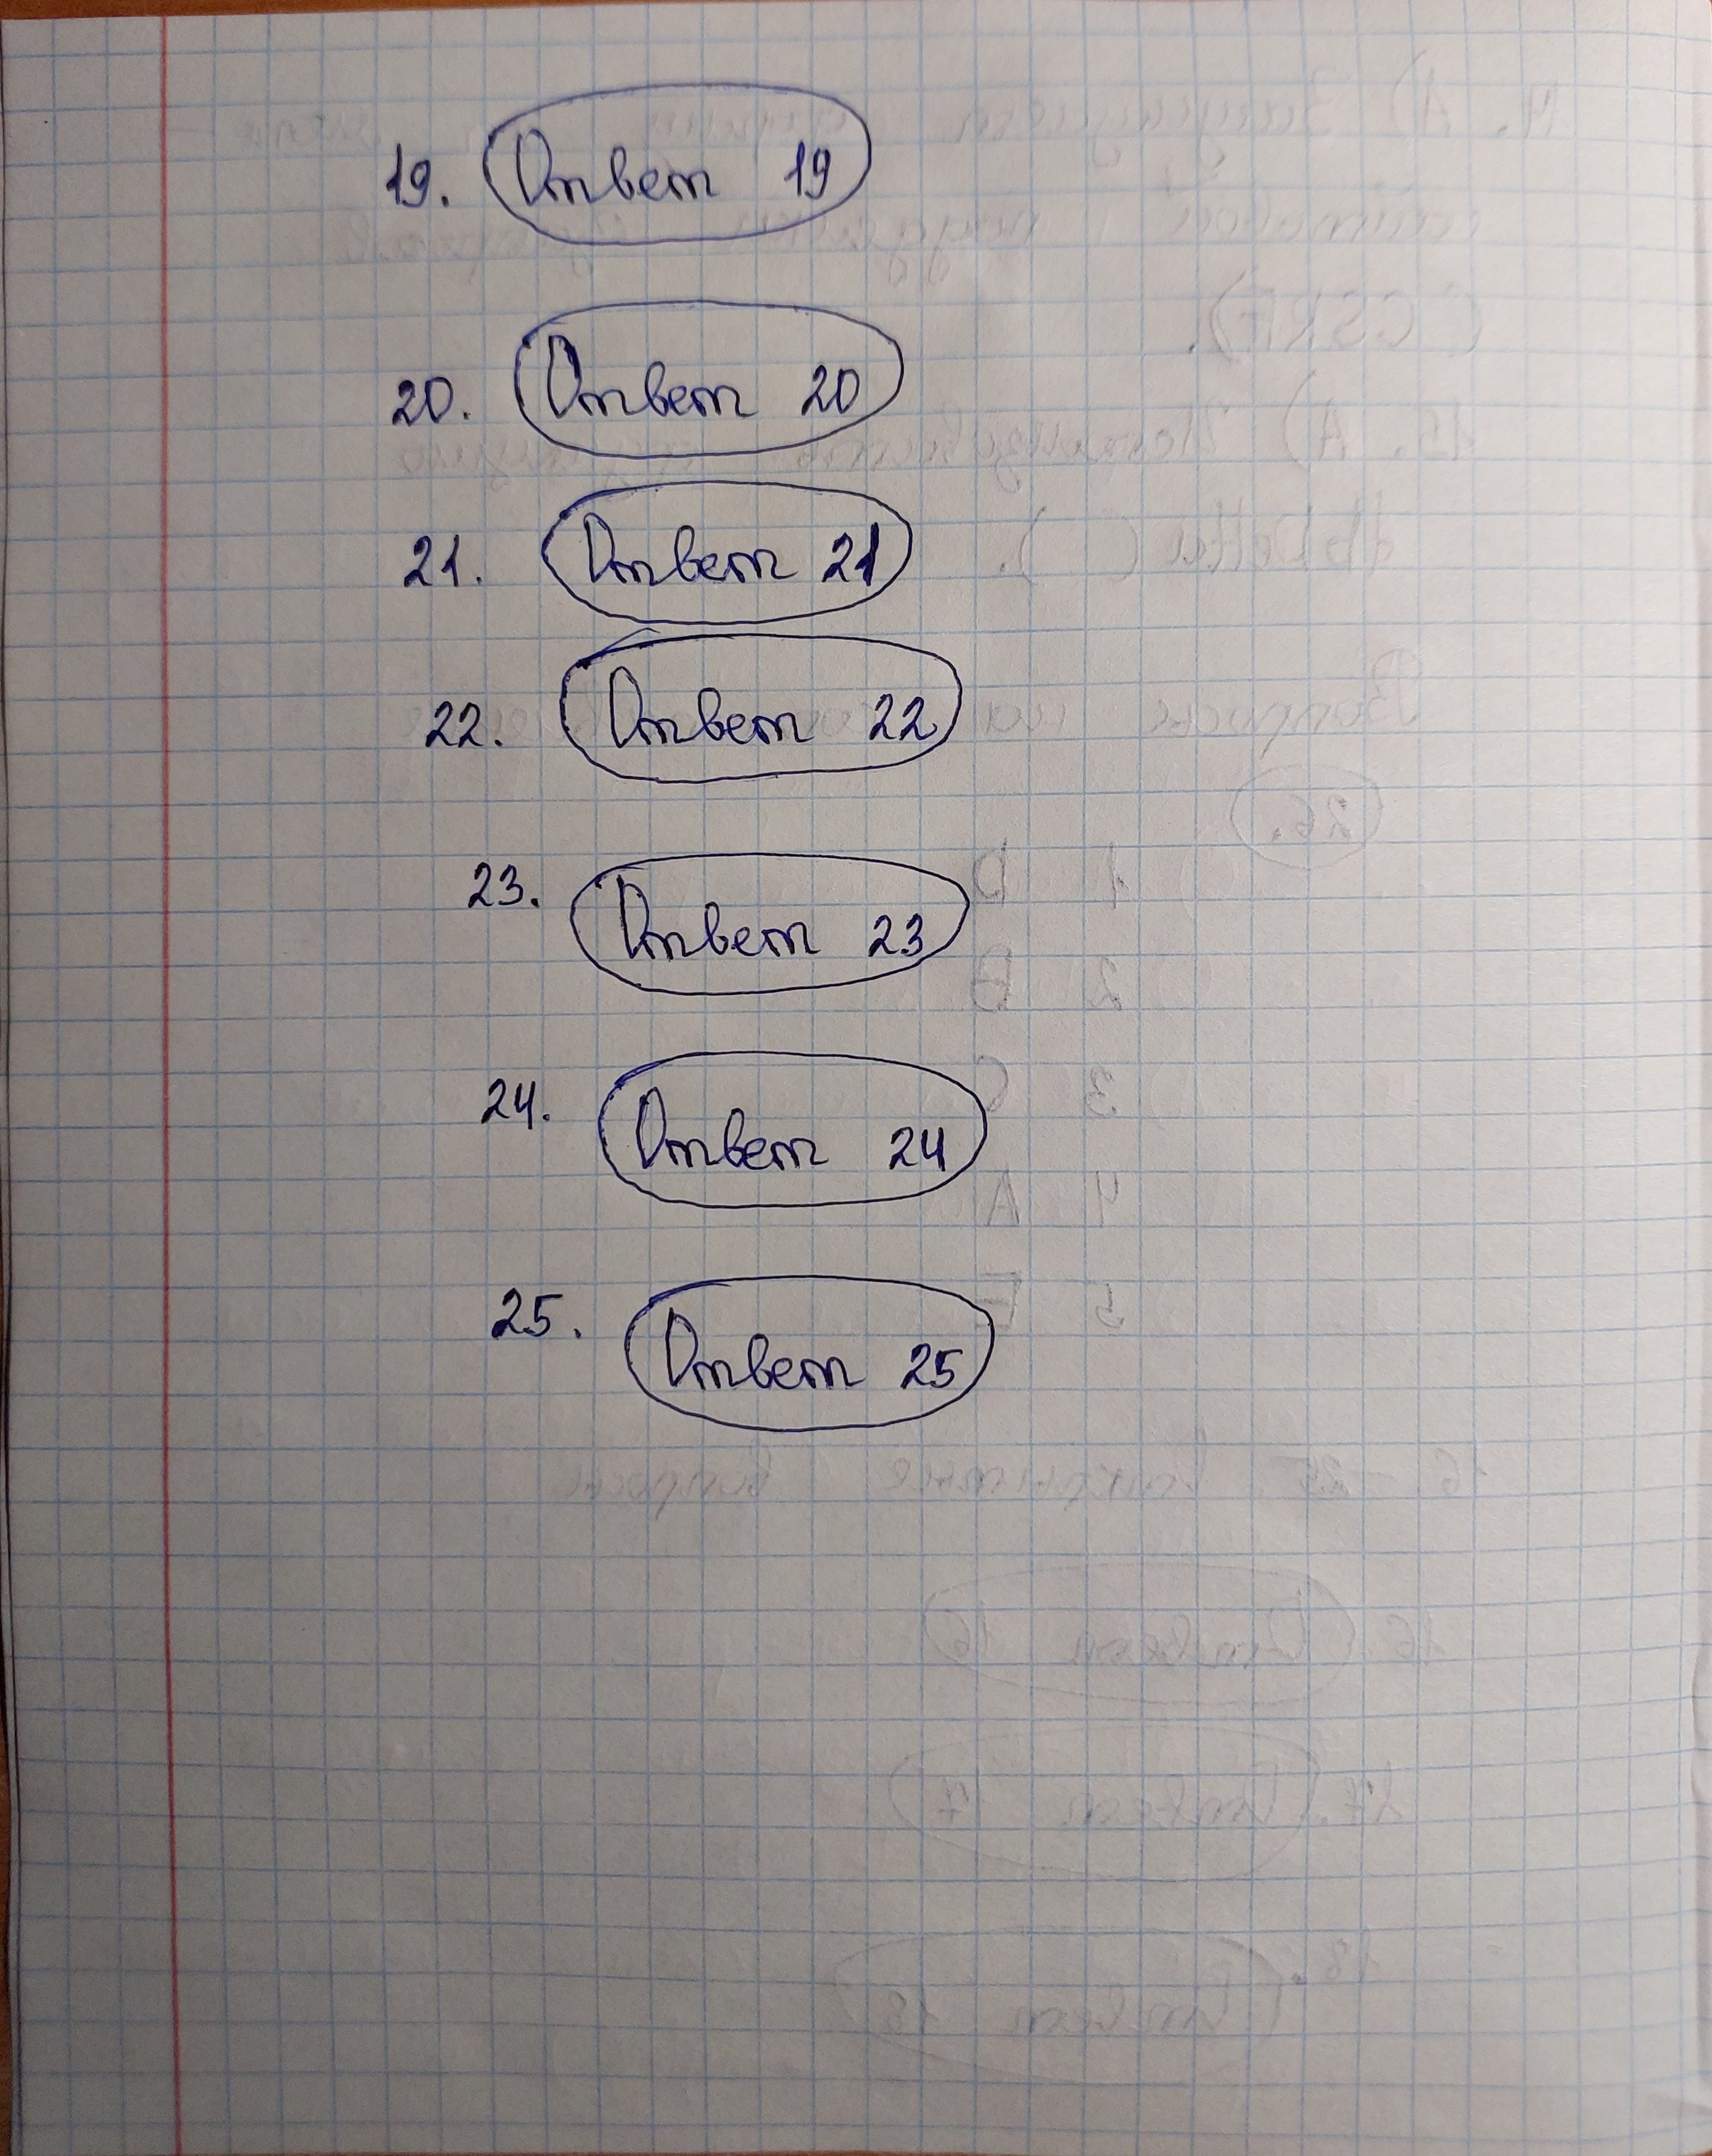 19. Ответ 19
20. Ответ 20
21. Ответ 21
22. Ответ 22
23. Ответ 23
24. Ответ 24
25. Ответ 25